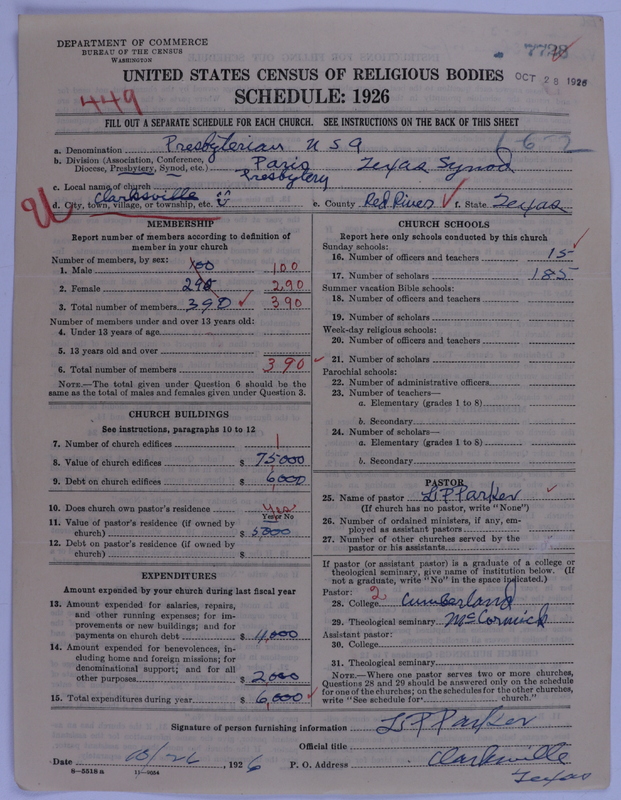 DEPARTMENT OF COMMERCE
BUREAU OF THE CENSUS
WASHINGTON
7738
OCT 28 1926
UNITED STATES CENSUS OF RELIGIOUS BODIES
SCHEDULE: 1926
449
FILL OUT A SEPARATE SCHEDULE FOR EACH CHURCH. SEE INSTRUCTIONS ON THE BACK OF THIS SHEET
a. Denomination Presbyterian U S A
1-6-2
b. Division (Association, Conference, Diocese, Presbytery, Synod, etc.) Paris Presbytery Texas Synod
c. Local name of church
d. City, town, village, or township, etc. Clarksville
e. County Red River f. State Texas
U
MEMBERSHIP
Report number of members according to definition of
member in your church
Number of members, by sex:
1. Male 100 100
2. Female 290 290
3. Total number of members 390 390
Number of members under and over 13 years old:
4. Under 13 years of age
5. 13 years old and over
6. Total number of members 390
NOTE.—The total given under Question 6 should be the
same as the total of males and females given under Question 3.
CHURCH BUILDINGS
See instructions, paragraphs 10 to 12
7. Number of church edifices 1
8. Value of church edifices $ 75000
9. Debt on church edifices $ 6000
10. Does church own pastor's residence Yes
Yes or No
11. Value of pastor's residence (if owned by
church) $ 5000
12. Debt on pastor's residence (if owned by
church) $
EXPENDITURES
Amount expended by your church during last fiscal year
13. Amount expended for salaries, repairs,
and other running expenses; for im-
provements or new buildings; and for
payments on church debt $ 4000
14. Amount expended for benevolences, in-
cluding home and foreign missions; for
denominational support; and for all
other purposes $ 2000
15. Total expenditures during year $ 6,000
CHURCH SCHOOLS
Report here only schools conducted by this church
Sunday schools:
16. Number of officers and teachers 15
17. Number of scholars 185
Summer vacation Bible schools:
18. Number of officers and teachers
19. Number of scholars
Week-day religious schools:
20. Number of officers and teachers
21. Number of scholars
Parochial schools:
22. Number of administrative officers
23. Number of teachers—
a. Elementary (grades 1 to 8)
b. Secondary
24. Number of scholars—
a. Elementary (grades 1 to 8)
b. Secondary
PASTOR
25. Name of pastor L P Parker
(If church has no pastor, write "None")
26. Number of ordained ministers, if any, em-
ployed as assistant pastors
27. Number of other churches served by the
pastor or his assistants
If pastor (or assistant pastor) is a graduate of a college or
theological seminary, give name of institution below. (If
not a graduate, write "No" in the space indicated.)
Pastor: 2
28. College Cumberland
29. Theological seminary McCormick
Assistant pastor:
30. College
31. Theological seminary
NOTE.—Where one pastor serves two or more churches,
Questions 28 and 29 should be answered only on the schedule
for one of the churches; on the schedules for the other churches,
write "See schedule for church."
Signature of person furnishing information L P Parker
Official title
Date 10/26, 1926 P. O. Address Clarksville
Texas
8—5518 a 11—9054